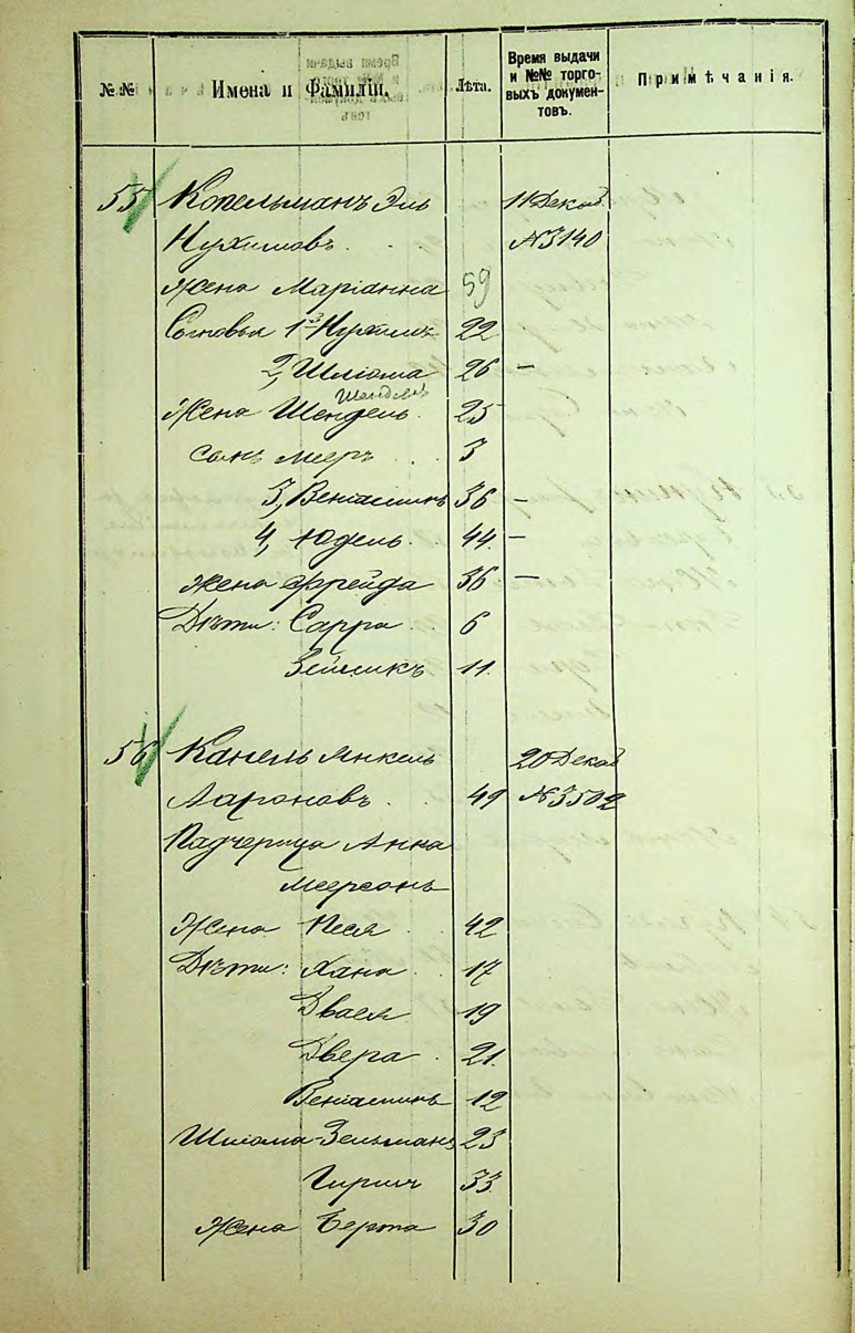 №№ Имена и Фамиліи. Лѣта. Время выдачи и №№ торговыхъ документовъ. Примѣчанія.
55 Копельманъ Эль 11 Декаб.
Нухимовъ . . № 3140
Жена Маріанна 59
Сыновья 1 Нухимъ 22
2, Шліома 26 —
Шендель
Жена Шендель. 25
сынъ Мееръ . . 3
3, Веніаминъ 36 —
4, Юдель. 44 —
Жена Фрейда 36 —
Дѣти: Сарра . . 6
Зеймикъ 11.
56 Канель Янкель 20 Декаб
Аароновъ . . 49 № 3502
Падчерица Анна
Меерсонъ
Жена Песя . 42
Дѣти: Хана . . 17
Двася 19
Двера . 21.
Веніаминъ 12
Шліома-Зельманъ 23
Гиршъ 33.
Жена Берта 30